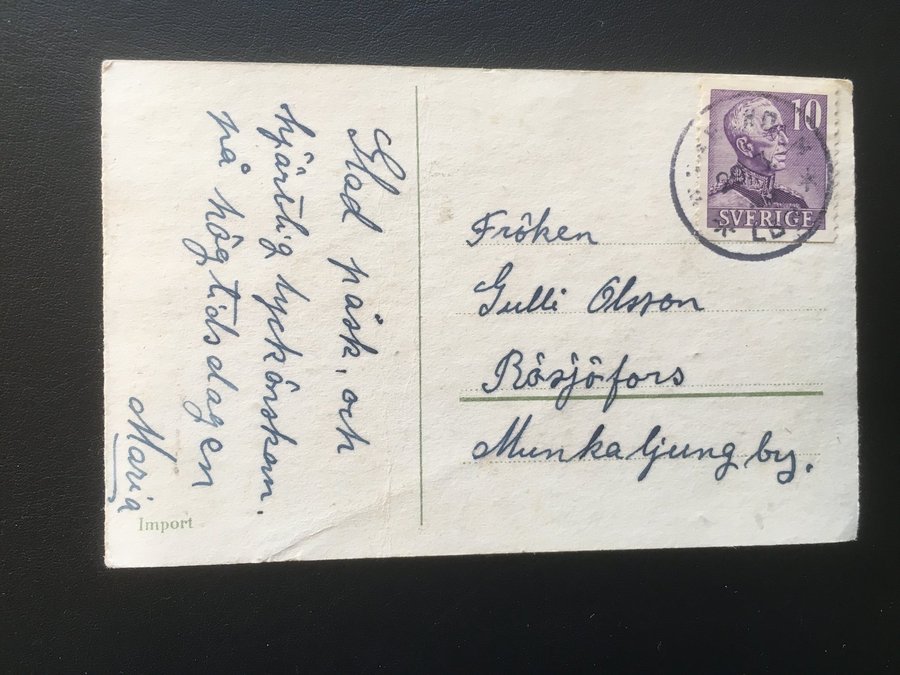 Glad påsk, och
hjärtlig lyckönskan.
på högtidsdagen
Maria
Import
10
SVERIGE
Fröken
Gulli Olsson
Rösjöfors
Munkaljungby.